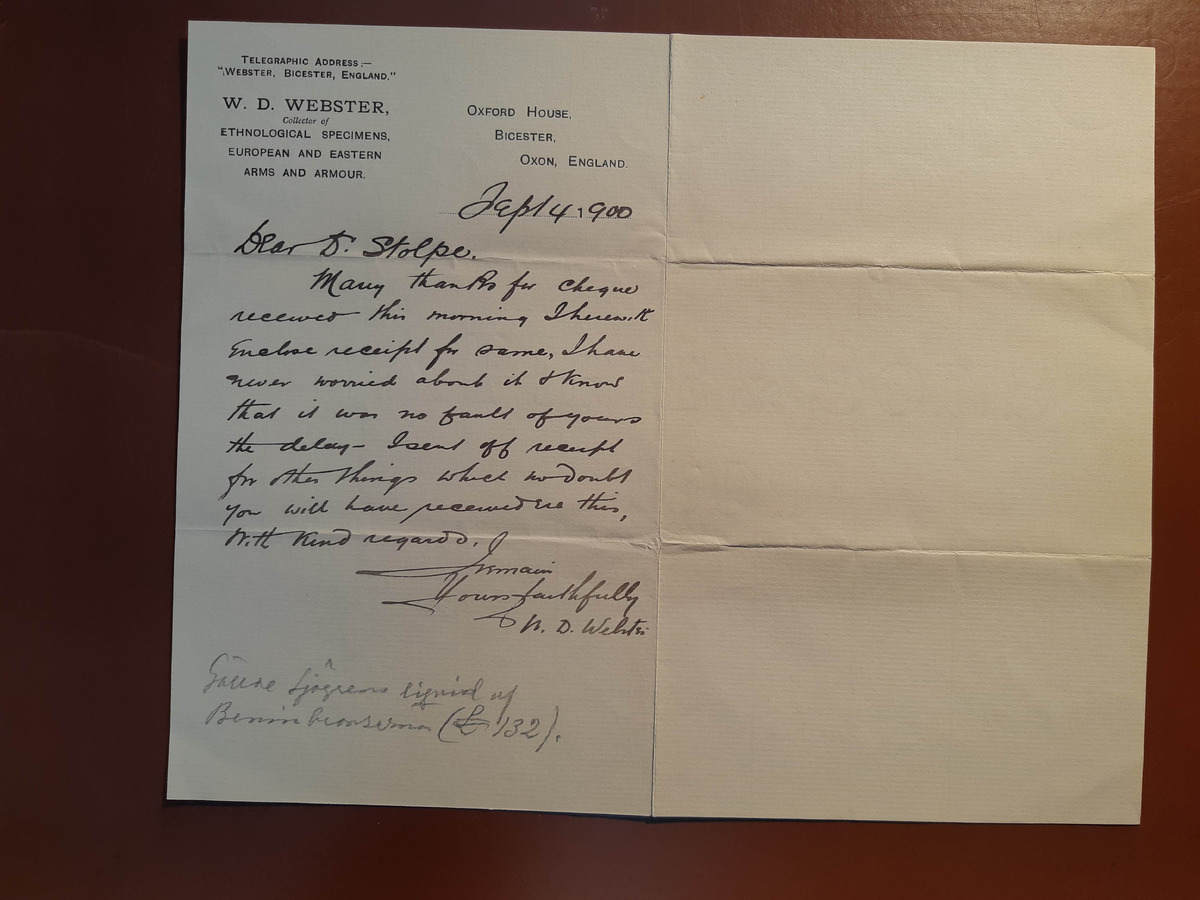 TELEGRAPHIC ADDRESS:—
"WEBSTER, BICESTER, ENGLAND."
W. D. WEBSTER,
Collector of
ETHNOLOGICAL SPECIMENS,
EUROPEAN AND EASTERN
ARMS AND ARMOUR.
OXFORD HOUSE,
BICESTER,
OXON, ENGLAND.
Sept 4, 1900
Dear Dr. Stolpe.
Many thanks for cheque
received this morning I herewith
enclose receipt for same, I have
never worried about it & Know
that it was no fault of yours
the delay— I sent off receipt
for other things which no doubt
you will have received ere this,
With Kind regards,
I remain
Yours faithfully
W. D. Webster
Gällde Sjögrens liqvid af
Beninbronserna (£ 132).